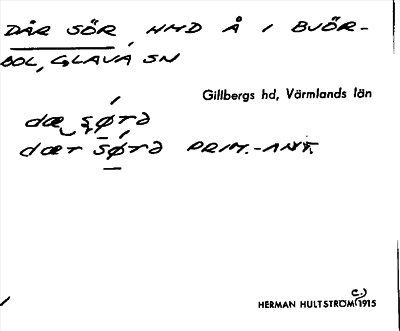 DÅR SÖR, HMD Å I BJÖR-
BOL, GLAVA SN
Gillbergs hd, Värmlands län
dæ søtə
dæt søtə PRIM.-ANT.
HERMAN HULTSTRÖM (c.) 1915